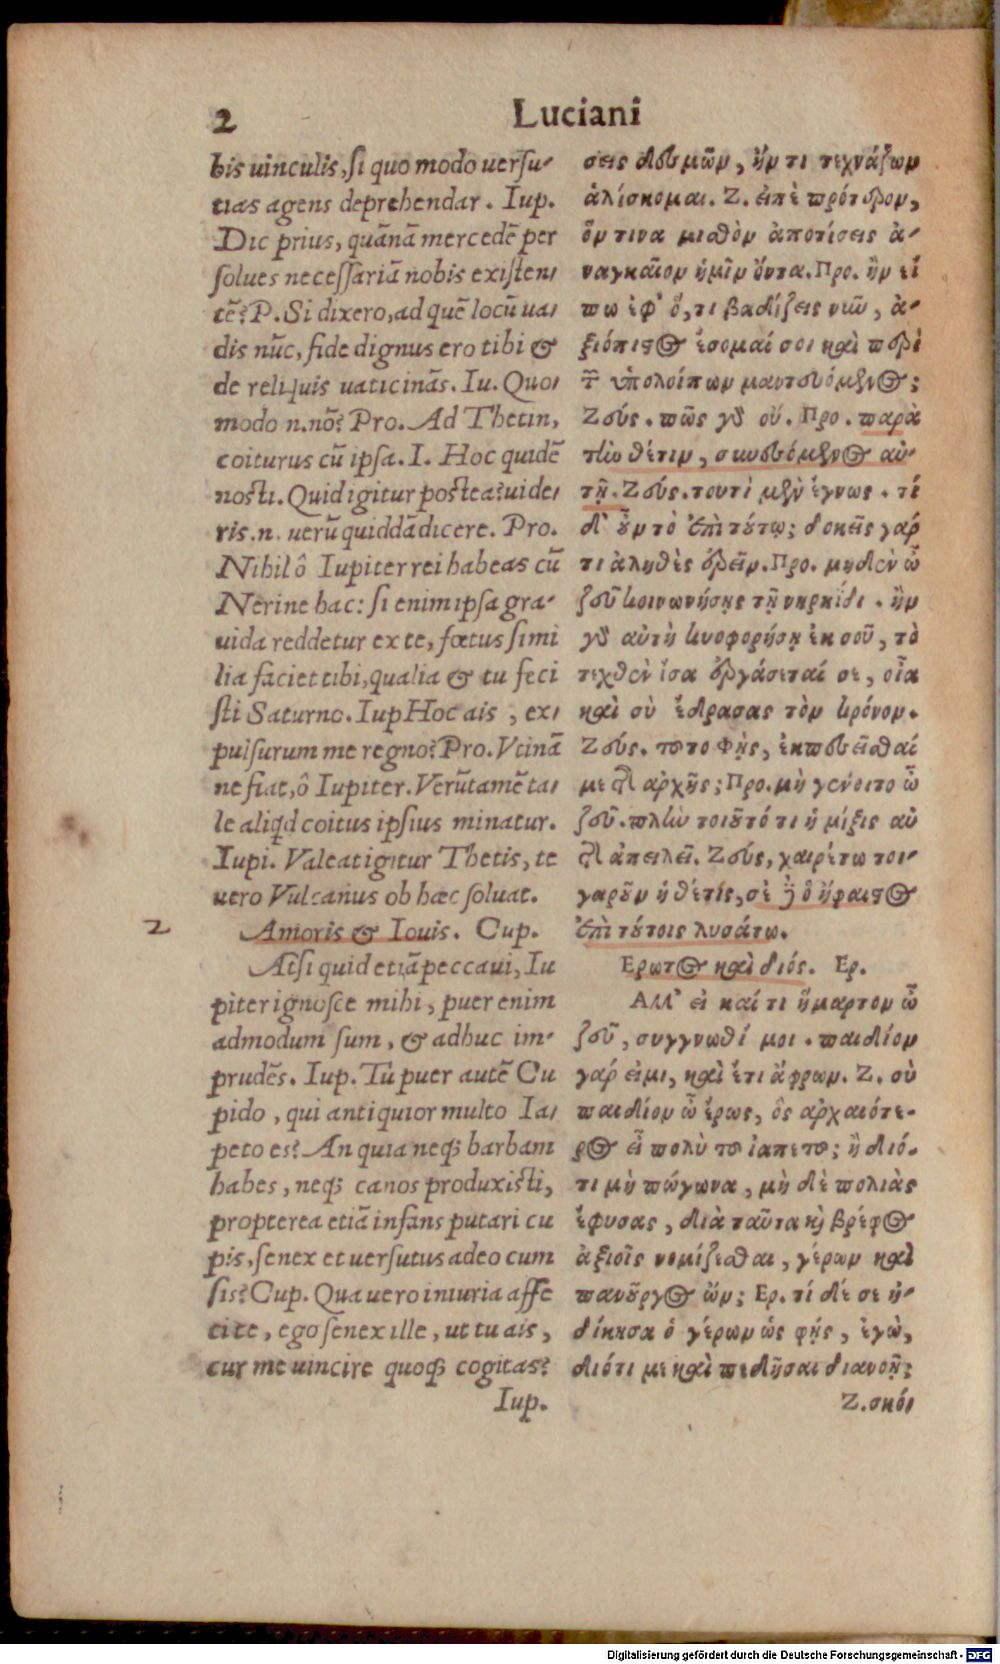 2
Luciani
bis uinculis, si quo modo uersu-
tias agens deprehendar. Iup.
Dic prius, quānā mercedē per
solues necessariā nobis existen-
tē? P. Si dixero, ad quē locū ua-
dis nūc, fide dignus ero tibi &
de reliquis uaticinās. Iu. Quo-
modo n. nō? Pro. Ad Thetin,
coiturus cū ipsa. I. Hoc quidē
nosti. Quid igitur postea? uide-
ris. n. uerū quiddā dicere. Pro.
Nihil ô Iupiter rei habeas cū
Nerine hac: si enim ipsa gra-
uida reddetur ex te, fœtus simi
lia faciet tibi, qualia & tu feci
sti Saturno. Iup Hoc ais, ex-
pulsurum me regno? Pro. Vtinā
ne fiat, ô Iupiter. Verūtamē ta-
le aliqd coitus ipsius minatur.
Iupi. Valeat igitur Thetis, te
uero Vulcanus ob hæc soluat.
2
Amoris & Iouis. Cup.
At si quid etiā peccaui, Iu
piter ignosce mihi, puer enim
admodum sum, & adhuc im-
prudēs. Iup. Tu puer autē Cu
pido, qui antiquior multo Ia-
peto es? An quia neq; barbam
habes, neq; canos produxisti,
propterea etiā infans putari cu
pis, senex et uersutus adeo cum
sis? Cup. Qua uero iniuria affe
ci te, ego senex ille, ut tu ais,
cur me uincire quoq; cogitas?
Iup.
σεις δεσμῶν, ἤν τι τεχνάζων
ἁλίσκομαι. Ζ. εἰπὲ πρότερον,
ὅν τινα μισθὸν ἀποτίσεις ἀ-
ναγκαῖον ἡμῖν ὄντα. Προ. ἢν εἴ
πω ἐφ' ὅ, τι βαδίζεις νῦν, ἀ-
ξιόπιστος ἔσομαί σοι καὶ περὶ
τῶν ὑπολοίπων μαντευόμενος;
Ζεύς. πῶς γὸ οὔ. Προ. παρὰ
τὴν θέτιν, συνεσόμενος αὐ-
τῇ. Ζεύς. τουτὶ μὲν ἔγνως. τί
δ' οὖν τὸ ἐπὶ τούτῳ; δοκεῖς γάρ
τι ἀληθὲς ἐρεῖν. Προ. μηδὲν ὦ
ζεῦ κοινωνήσῃς τῇ νηρηΐδι. ἢν
γὸ αὐτὴ κυοφορήσῃ ἐκ σοῦ, τὸ
τεχθὲν ἴσα ἐργάσεταί σε, οἷα
καὶ σὺ ἔδρασας τὸν κρόνον.
Ζεύς. τοῦτο φῇς, ἐκπεσεῖσθαί
με τῆς ἀρχῆς; Προ. μὴ γένοιτο ὦ
ζεῦ. πλὴν τοιοῦτό τι ἡ μίξις αὐ
τῆς ἀπειλεῖ. Ζεύς, χαιρέτω τοι-
γαροῦν ἡ θέτις, σὲ δὲ ὁ ἥφαιστος
ἐπὶ τούτοις λυσάτω.
Ερωτος καὶ διός. Ερ.
Αλλ' εἰ καί τι ἥμαρτον ὦ
ζεῦ, συγγνωθί μοι. παιδίον
γάρ εἰμι, καὶ ἔτι ἄφρων. Ζ. σὺ
παιδίον ὦ ἔρως, ὃς ἀρχαιότε-
ρος εἶ πολὺ τοῦ ἰαπετοῦ; ἢ διό-
τι μὴ πώγωνα, μὴ δὲ πολιὰς
ἔφυσας, διὰ ταῦτα κὶ βρέφος
ἀξιοῖς νομίζεσθαι, γέρων καὶ
πανοῦργος ὤν; Ερ. τί δέ σε ἠ-
δίκησα ὁ γέρων ὡς φῄς, ἐγὼ,
διότι με καὶ πεδῆσαι διανοῇ;
Ζ. σκό-
Digitalisierung gefördert durch die Deutsche Forschungsgemeinschaft - DFG